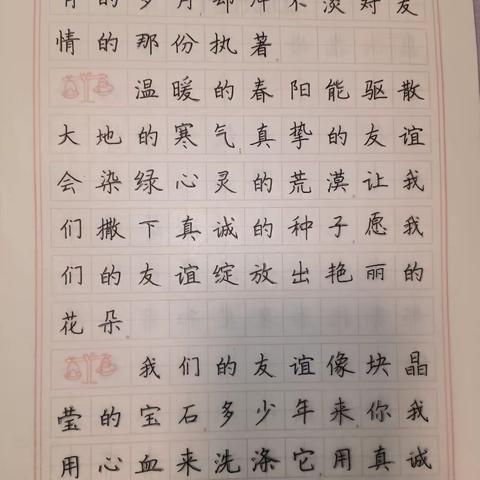 的岁月却冲不淡对友
情的那份执著.
温暖的春阳能驱散
大地的寒气;真挚的友谊
会染绿心灵的荒漠,让我
们撒下真诚的种子愿我
们的友谊绽放出艳丽的
花朵.
我们的友谊像块晶
莹的宝石多少年来,你我
用心血来洗涤它用真诚